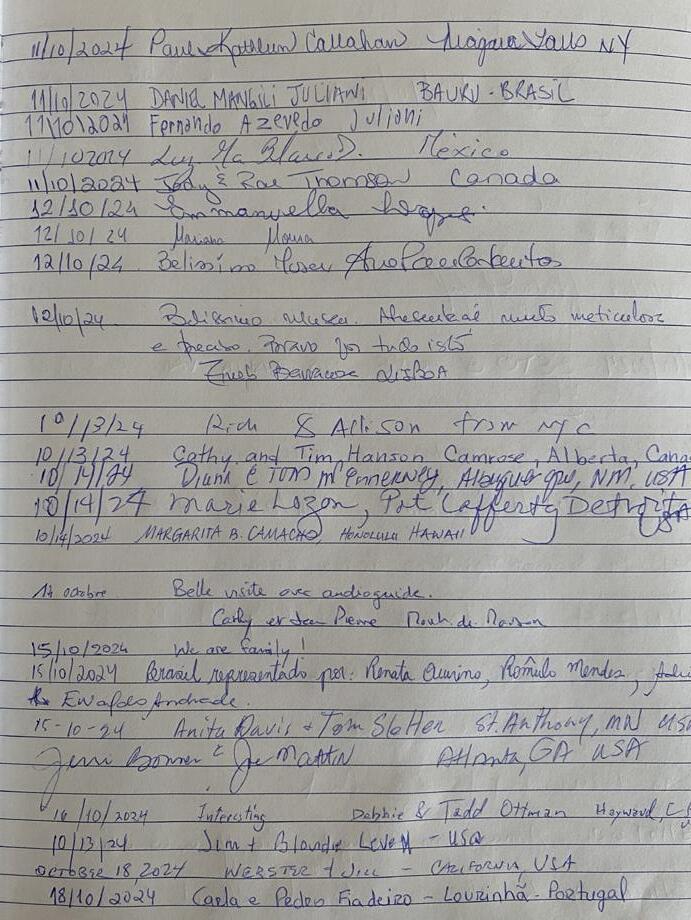 11/10/2024 Paul Kathleen Callahan Niagara Falls NY
11/10/2024 DANIEL MANGILI JULIANI BAURU - BRASIL
11/10/2024 Fernando Azevedo Juliani
11/102024 Luz Ma. Blanco D. México
11/10/2024 Jody & Rae Thomson Canada
12/10/24 Emmanuella
12/10/24 Mariana Moura
12/10/24 Belissimo Museu Ana Paula
12/10/24. Belissimo museu. muito meticulosa
e precisa. Bravo por tudo isto
LISBOA
10/13/24 Rich & Allison from NYC
10/13/24 Cathy and Tim Hanson Camrose, Alberta, Cana
10/14/24 Diana & Tom McEnnerney, Albuquerque, NM, USA
10/14/24 Marie Lozon, Pat Cafferty Detroit
USA
10/14/2024 MARGARITA B. CAMACHO, HONOLULU HAWAII
14 octobre Belle visite avec audioguide.
Cathy et Jean Pierre
15/10/2024 We are family!
15/10/2024 Brasil representado por: Renata Quirino, Rômulo Mendes,
Ewaldo Andrade.
15-10-24 Anita Davis + Tom Slotter St. Anthony, MN USA
Jerri Bonner & Joe MARTIN Atlanta, GA USA
16/10/2024 Interesting Debbie & Tadd Ottman Hayward,
10/13/24 Jim + Blondie Leven - USA
OCTOBER 18, 2024 WEBSTER + JILL - CALIFORNIA, USA
18/10/2024 Carla e Pedro Fiadeiro - Lourinhã - Portugal